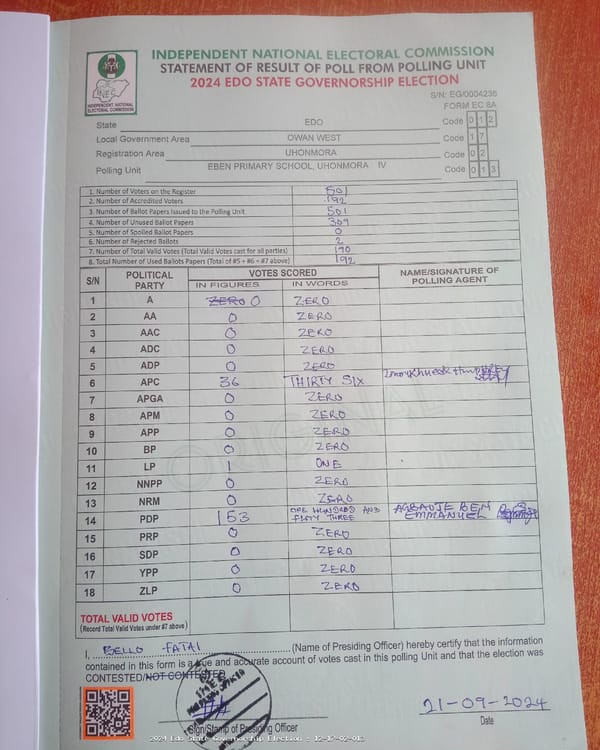 INDEPENDENT NATIONAL ELECTORAL COMMISSION
STATEMENT OF RESULT OF POLL FROM POLLING UNIT
2024 EDO STATE GOVERNORSHIP ELECTION
INEC
INDEPENDENT NATIONAL ELECTORAL COMMISSION
S/N: EG/0004236
FORM EC 8A
State EDO Code 0 1 2
Local Government Area OWAN WEST Code 1 7
Registration Area UHONMORA Code 0 2
Polling Unit EBEN PRIMARY SCHOOL, UHONMORA IV Code 0 1 3
1. Number of Voters on the Register 501
2. Number of Accredited Voters 192
3. Number of Ballot Papers Issued to the Polling Unit 501
4. Number of Unused Ballot Papers 309
5. Number of Spoiled Ballot Papers 0
6. Number of Rejected Ballots 2
7. Number of Total Valid Votes (Total Valid Votes cast for all parties) 190
8. Total Number of Used Ballots Papers (Total of #5 + #6 + #7 above) 192
S/N POLITICAL PARTY VOTES SCORED NAME/SIGNATURE OF POLLING AGENT
IN FIGURES IN WORDS
1 A ZERO 0 ZERO
2 AA 0 ZERO
3 AAC 0 ZERO
4 ADC 0 ZERO
5 ADP 0 ZERO
6 APC 36 THIRTY SIX
7 APGA 0 ZERO
8 APM 0 ZERO
9 APP 0 ZERO
10 BP 0 ZERO
11 LP 1 ONE
12 NNPP 0 ZERO
13 NRM 0 ZERO
14 PDP 153 ONE HUNDRED AND FIFTY THREE AGBADJE BEN EMMANUEL
15 PRP 0 ZERO
16 SDP 0 ZERO
17 YPP 0 ZERO
18 ZLP 0 ZERO
TOTAL VALID VOTES
(Record Total Valid Votes under #7 above)
I, BELLO FATAI (Name of Presiding Officer) hereby certify that the information
contained in this form is a true and accurate account of votes cast in this polling Unit and that the election was
CONTESTED/NOT CONTESTED
21-09-2024
Sign/Stamp of Presiding Officer Date
2024 Edo State Governorship Election - 12-17-02-013